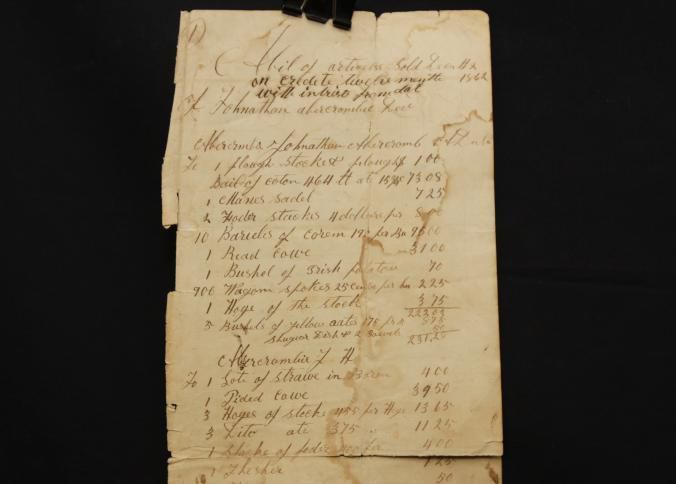 1)
A bil of articles Sold Decm 4th
on credite twelve months 1862
with intrist from dat
of Johnathan abercrombie Dec
Abercrombi Johnathan Abercromb
To 1 plough stocke & plough 1 00
Bail of coton 464 lt at 15 73 08
1 Manes Sadel 7 25
2 Foder stackes 4 dollers per 8 00
10 Bareles of corem per Ba 96 00
1 Read Cowe 31 00
1 Bushel of Irish potatoes 70
900 Wagom spokes 25 cents per hu 2 25
1 Hoge of the stock 3 75
222 03
3 Bushels of yellow oates 175 per
Shugar Dish & 2
231,25
Abercrombie J H
To 1 Lote of strawe in Baren 4 00
1 Pided Cowe 39 50
3 Hoges of stocke 455 per Hoge 13 65
3 Dito ate 375 11 25
1 Stacke of foder 4 00
1 Thesher 1 25
50